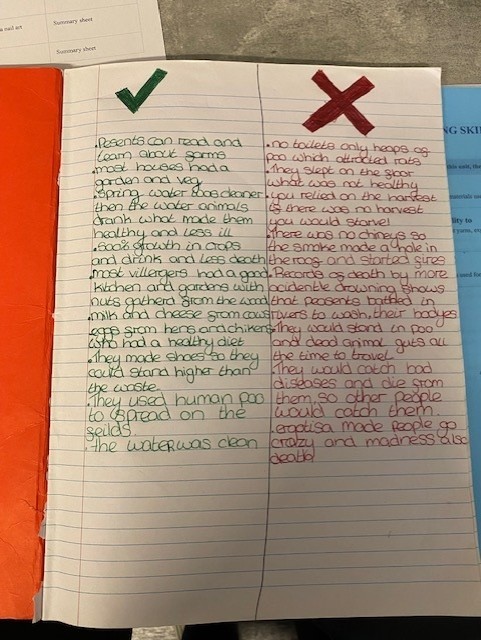 a nail art
Summary sheet
Summary sheet
.Pesents can read and
learn about farms
.most houses had a
garden and veg
.spring water was cleaner
then the water animals
drank. what made them
healthy and less ill
.600% growth in crops
and drink and less death
.most villergers had a good
kitchen and gardens with
nuts gatherd from the wood
.milk and cheese from cows
eggs from hens and chikens
who had a healthy diet
.They made shoes so they
could stand higher than
the waste.
.They used human poo
to spread on the
feilds.
.the water was clean
.no toilets only heaps of
poo which attracted rats
.They slept on the floor
what was not healthy
.you relied on the harvest
if there was no harvest
you would starve!
.there was no chimeys so
the smoke made a hole in
the roof and started fires
.Records of death by more
acidentle drowning shows
that peasents bathed in
rivers to wash, their bodyes
.They would stand in poo
and dead animal guts all
the time to travel.
.They would catch bad
diseases and die from
them, so other people
would catch them.
.eroptisa made people go
crazy and madness also
death!
NG SKI